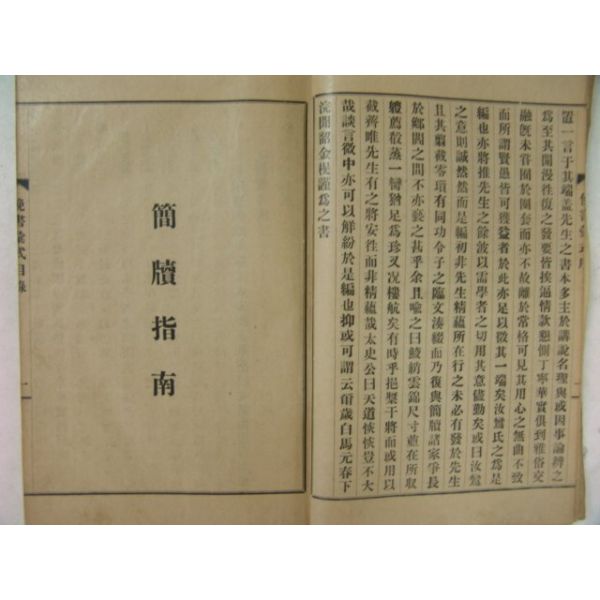 置一言于其端盖先生之書本多主於講說名理與或因事論辨之
為至其閒漫徃復之發要皆挨逼情款懇惻丁寧華實俱到雅俗交
融旣未甞圈於圈套而亦不故離於常格可見其用心之無曲不致
而所謂賢愚皆可獲益者於此亦足以徵其一端矣汝氏之為是
編也亦將推先生之餘波以需學者之切用其意儘勤矣或曰汝
之意則誠然然而是編初非先生精蘊所在行之未必有發於先生
且其翦截零瑣有同功令子之臨文湊綴而乃復與簡牘諸家爭長
於鄕閭之間不亦褻之甚乎余曰喩之曰綾紡雲錦尺寸蓮在所収
軆薦殽蒸一臠猶足為珍又况樓航矣有時乎挹槳干將而或用以
截薺唯先生有之將安徃而非精蘊哉太史公曰天道恢恢豈不大
哉談言微中亦可以解紛於是編也抑或可謂云爾歲白馬元春下
浣聞韶金榥謹為之書
簡牘指南
俛書式目錄
一